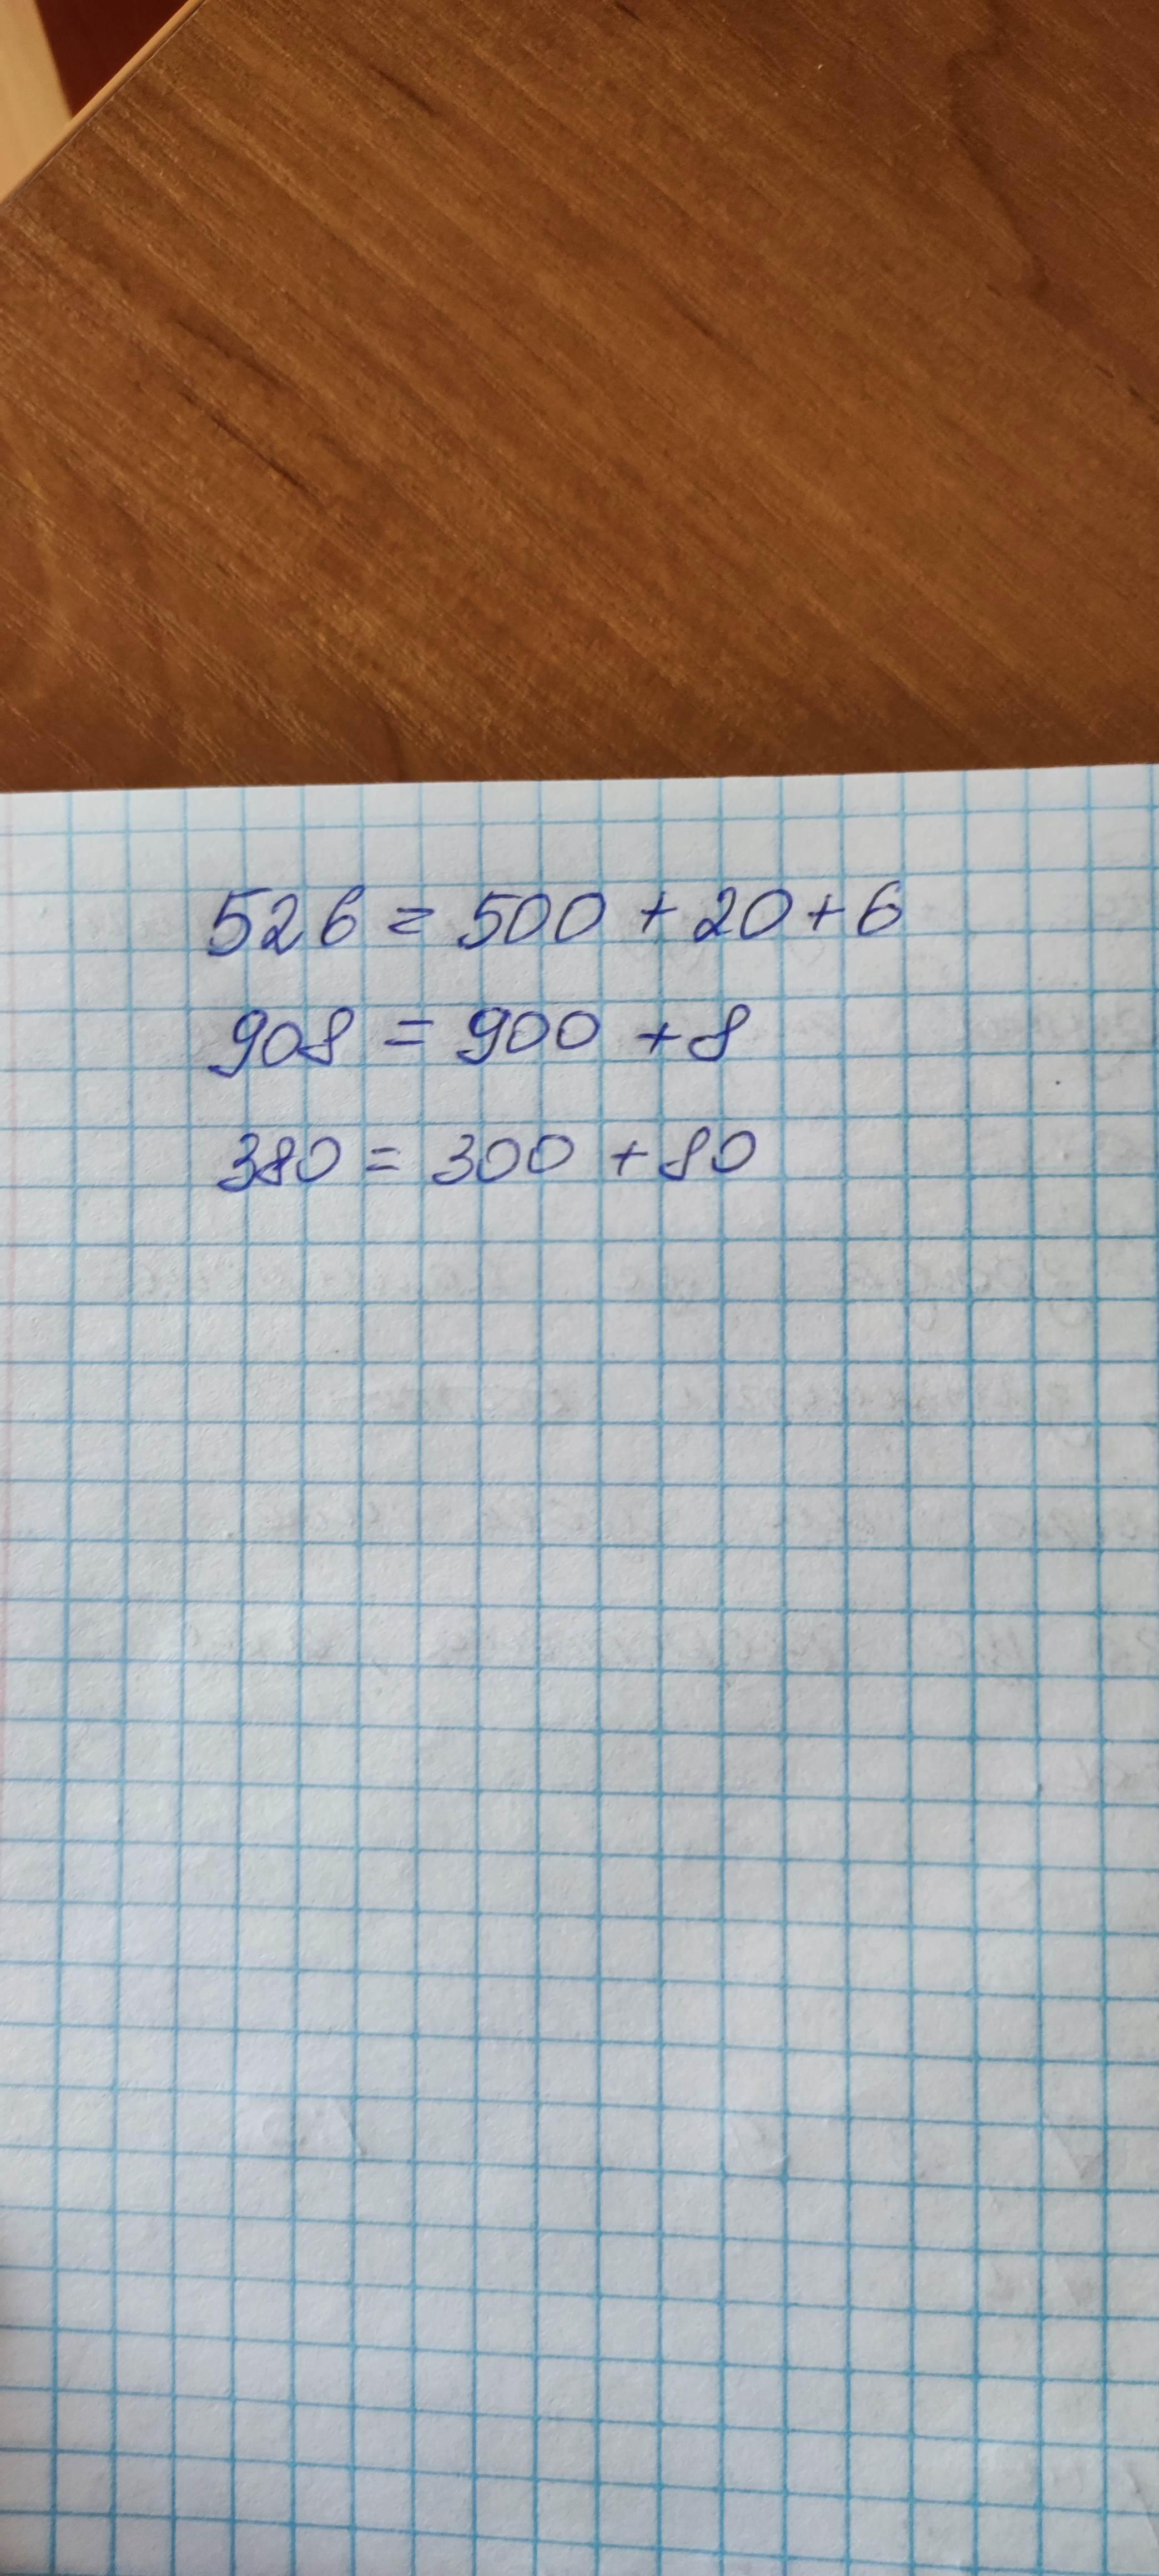 526 = 500 + 20 + 6
908 = 900 + 8
380 = 300 + 80